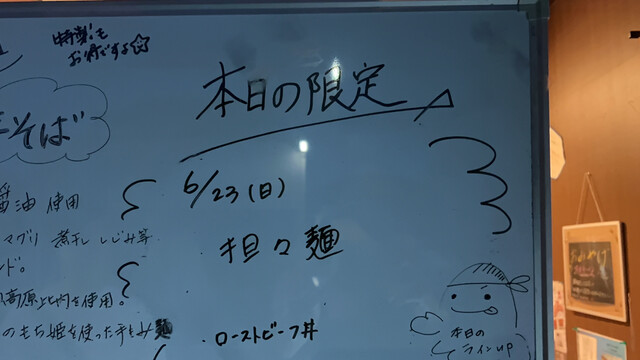 特製も
お得ですよ☆
本日の限定
そば
6/23(日)
油 使用
マグリ 煮干 しじみ等
担々麺
ンド。
高原比内を使用。
のもち姫を使った手もみ麺
ローストビーフ丼
本日の
ラインUP